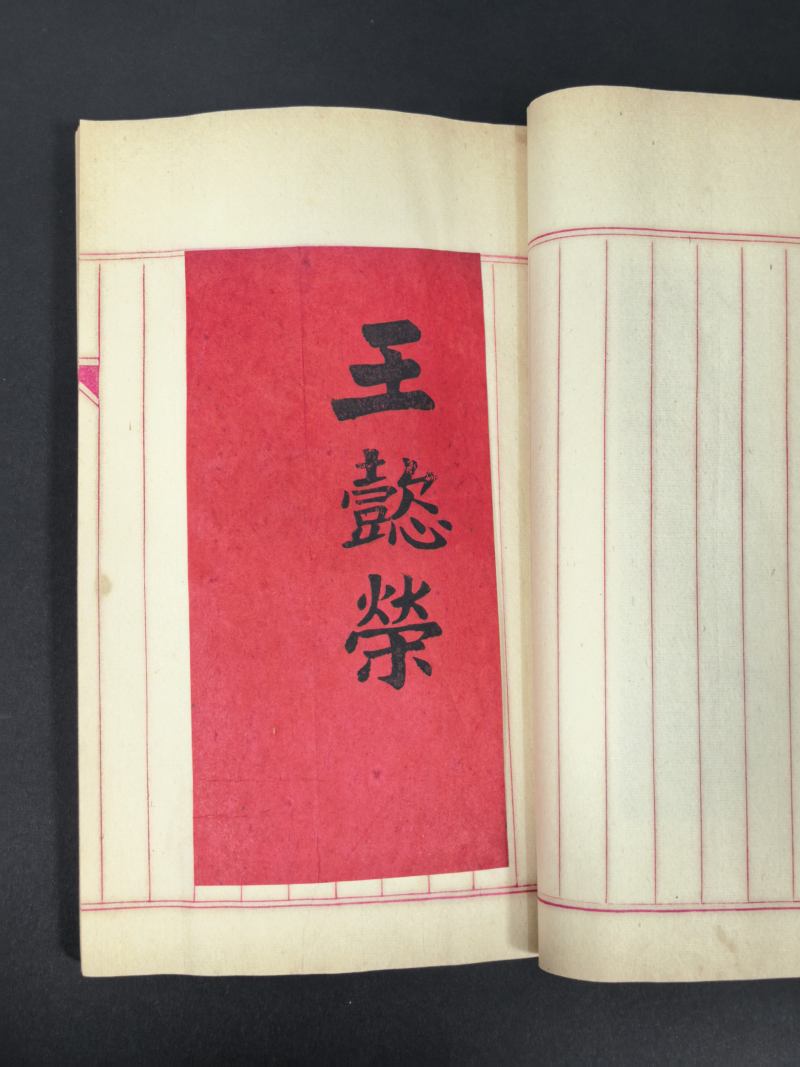 王懿榮